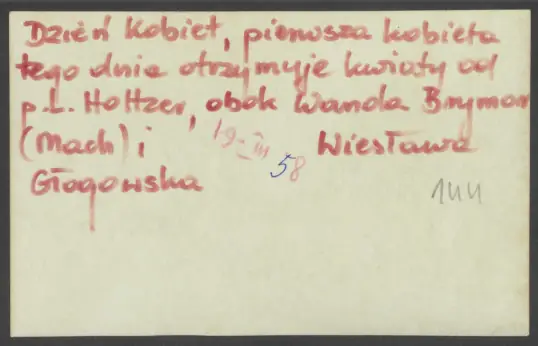 Dzień Kobiet, pierwsza kobieta
tego dnia otrzymuje kwiaty od
p. L. Holtzer, obok Wanda Brymor
(Mach) i Wiesława
19-III 58
Głogowska
144